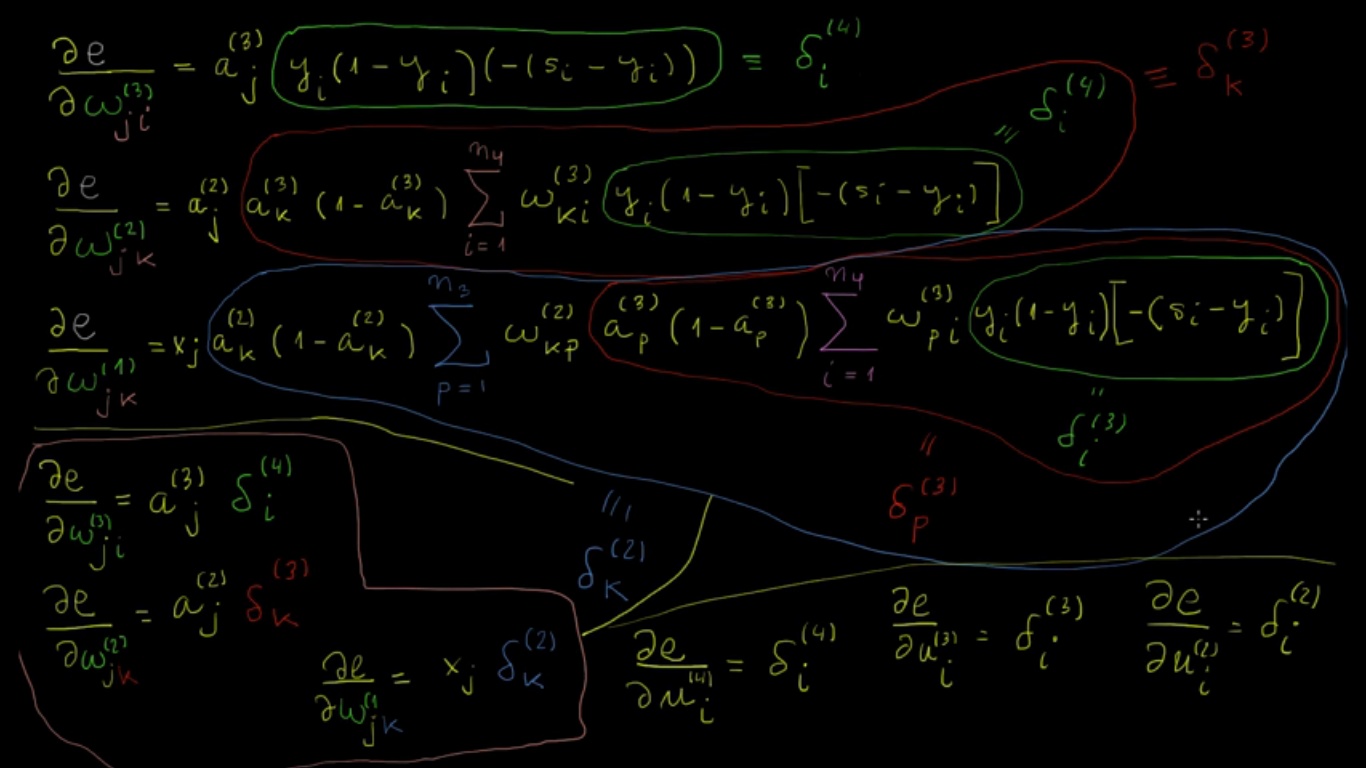 ∂e/∂ω_{ji}^{(3)} = a_j^{(3)} y_i(1-y_i](-(s_i-y_i)) ≡ δ_i^{(4)}
≡ δ_k^{(3)}
= δ_i^{(4)}
∂e/∂ω_{jk}^{(2)} = a_j^{(2)} a_k^{(3)} (1-a_k^{(3)}) Σ_{i=1}^{n_4} ω_{ki}^{(3)} y_i(1-y_i)[-(s_i-y_i)]
∂e/∂ω_{jk}^{(1)} = x_j a_k^{(2)} (1-a_k^{(2)}) Σ_{p=1}^{n_3} ω_{kp}^{(2)} a_p^{(3)} (1-a_p^{(3)}) Σ_{i=1}^{n_4} ω_{pi}^{(3)} y_i(1-y_i)[-(s_i-y_i)]
" δ_i^{(3)}
= δ_p^{(3)}
≡ δ_k^{(2)}
∂e/∂ω_{ji}^{(3)} = a_j^{(3)} δ_i^{(4)}
∂e/∂ω_{jk}^{(2)} = a_j^{(2)} δ_k^{(3)}
∂e/∂ω_{jk}^{(1} = x_j δ_k^{(2)}
∂e/∂u_i^{(4)} = δ_i^{(4)}
∂e/∂u_i^{(3)} = δ_i^{(3)}
∂e/∂u_i^{(2)} = δ_i^{(2)}